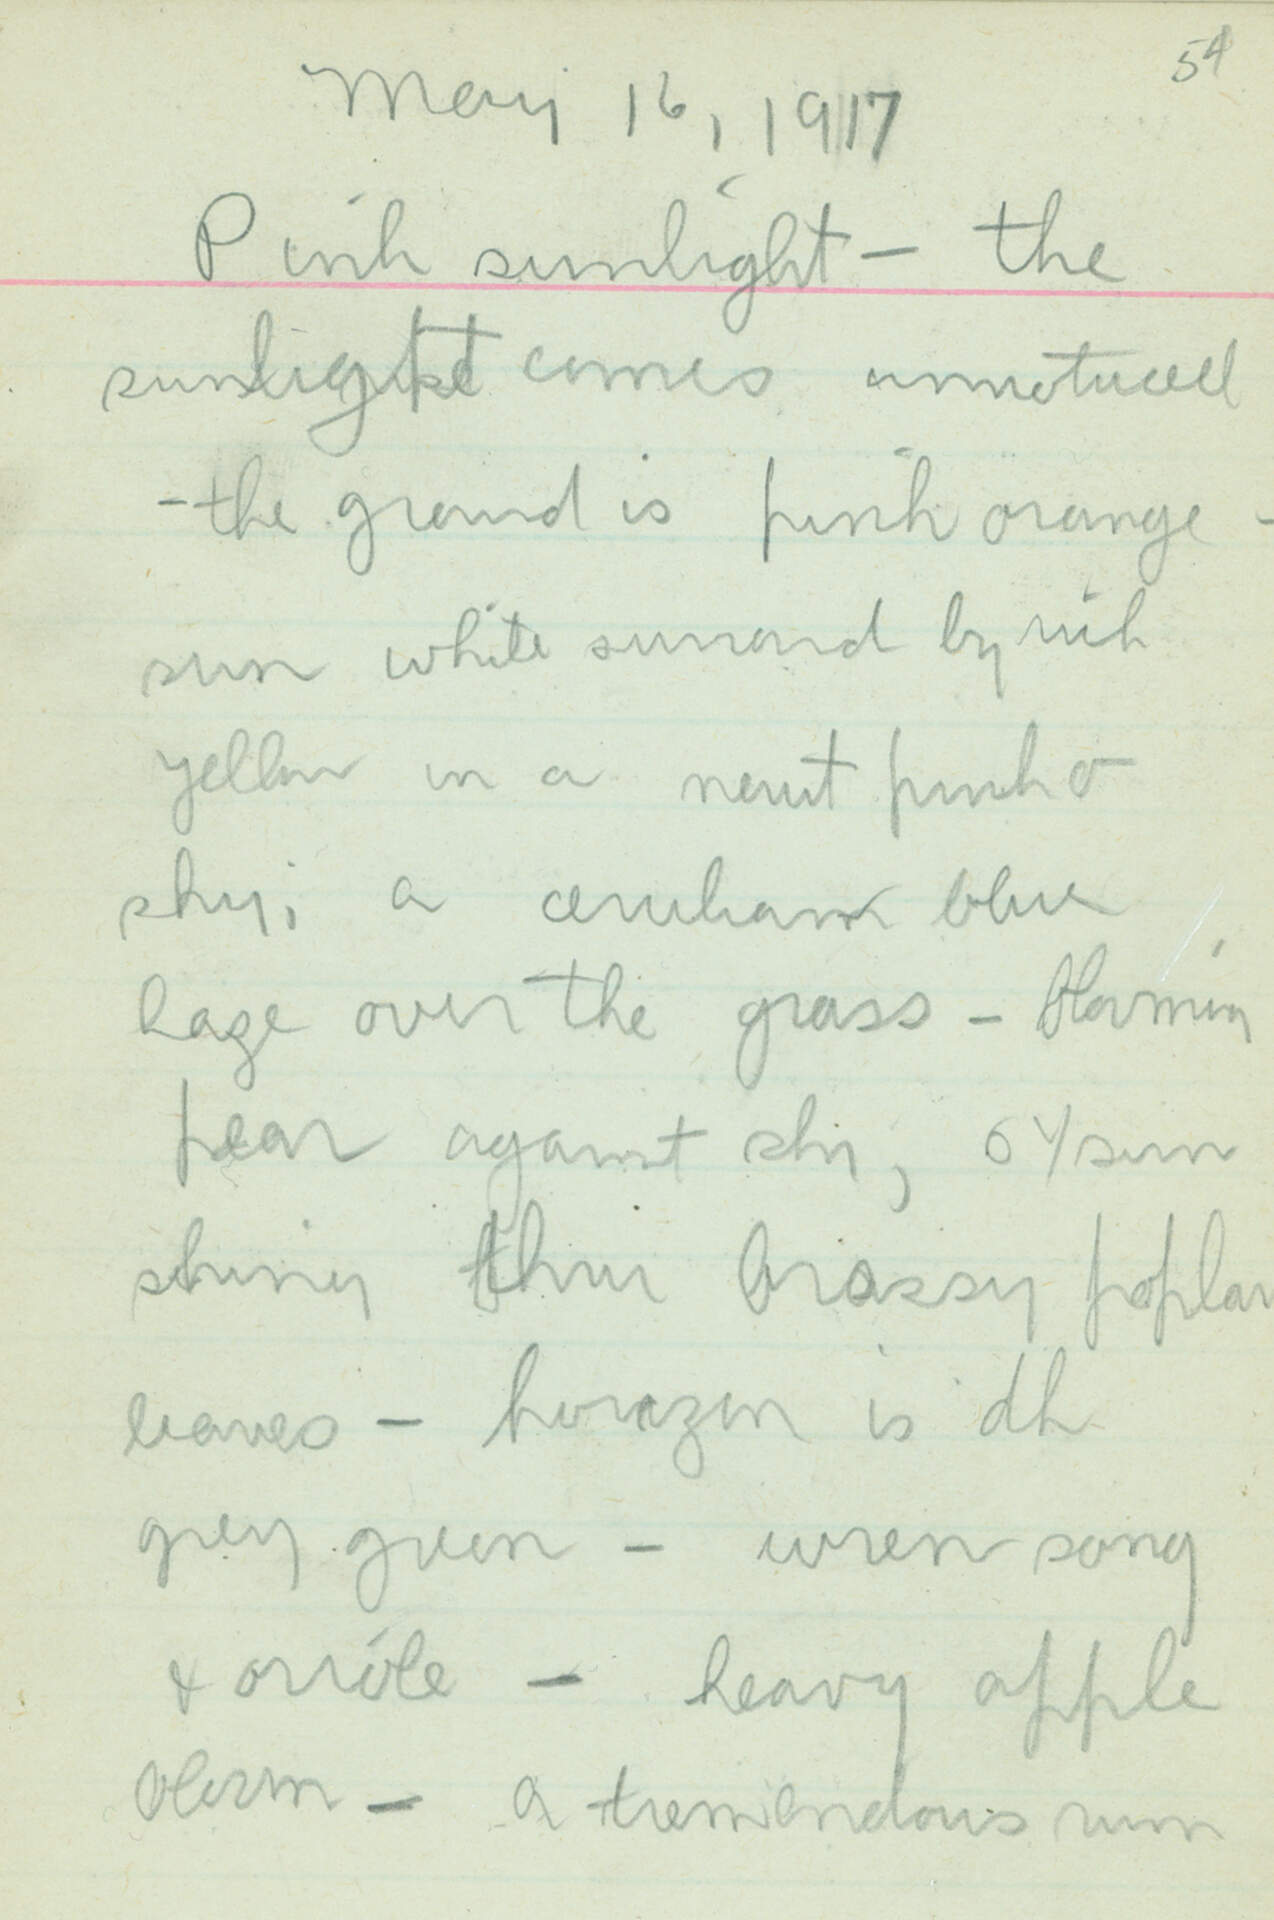 54
May 16, 1917
Pink sunlight – the
sunlight comes unnoticed
- the ground is pink orange -
sun white surround by rich
yellow in a neut pink o
sky; a cerulean blue
haze over the grass – blooming
pear against sky, OY sun
shining thru brassy poplar
leaves – horizon is dk
grey green – wren song
& oriole – heavy apple
bloom – a tremendous sum